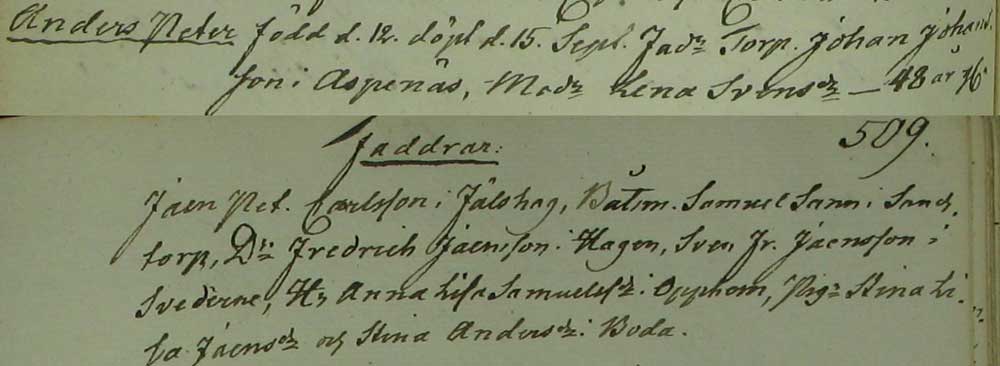 Anders Peter född d. 12. döpt d. 15. Sept. Fadr Torp. Johan Johans
son i Aspenäs, Modr Lena Svensdr — 48 år
Faddrar: 509.
Jaen Pet. Carlsson i Jälshag, Båtsm. Samuel Sann i Sand
torp, Dr: Fredrich Jaensson i Hagen, Sven Jr. Jaensson i
Svederne, H: Anna Lisa Samuelsdr i Opphem, Pig: Stina Li
sa Jaensdr och Stina Andersdr i Boda.